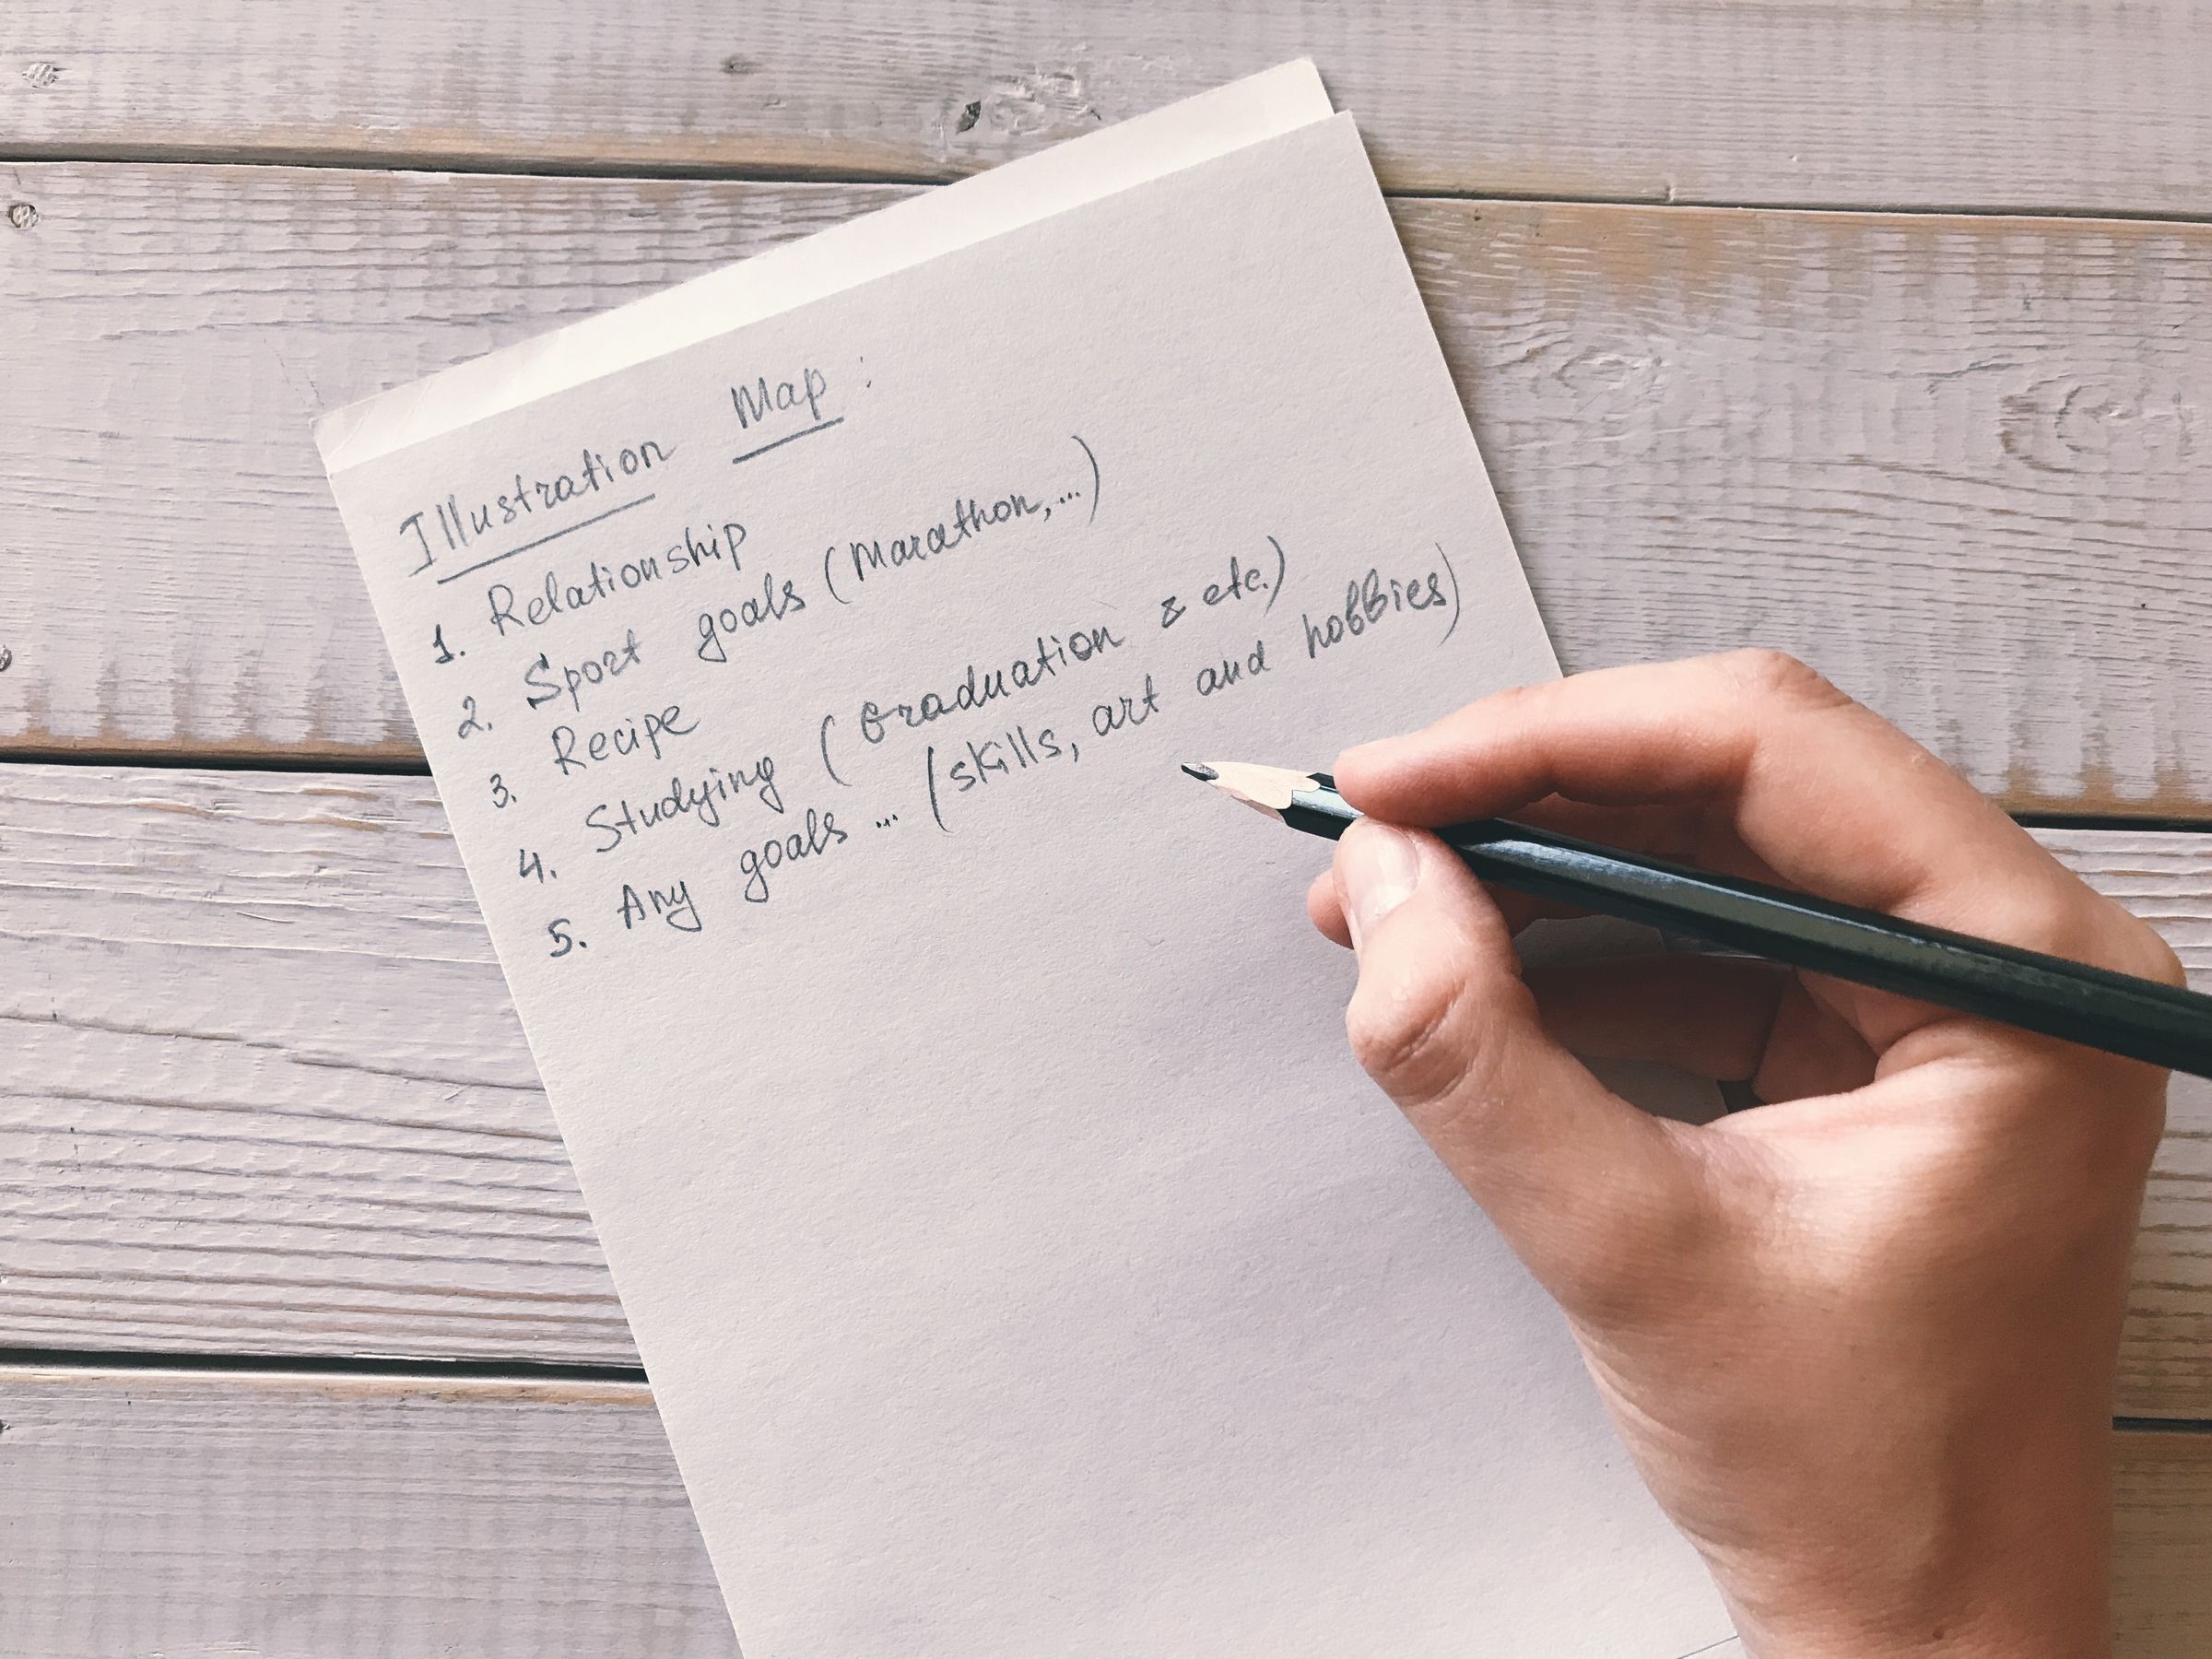 Illustration Map :
1. Relationship
2. Sport goals (Marathon,...)
3. Recipe
4. Studying (Graduation & etc.)
5. Any goals ... (skills, art and hobbies)